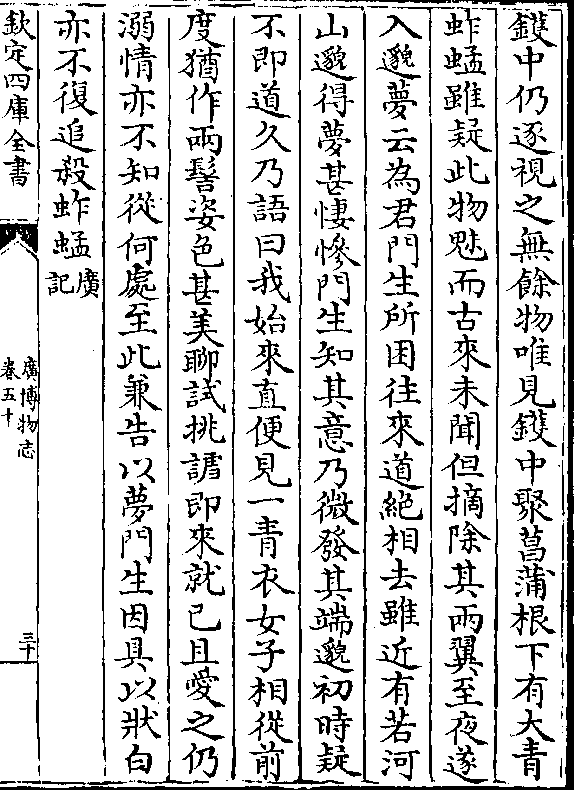 鑊中仍逐視之無餘物唯見鑊中聚菖蒲根下有大青
蚱蜢雖疑此物魅而古來未聞但摘除其兩翼至夜遂
入邈夢云為君門生所困往來道絶相去雖近有若河
山邈得夢甚悽慘門生知其意乃微發其端邈初時疑
不即道久乃語曰我始來直便見一青衣女子相從前
度猶作兩髻姿色甚美聊試挑謔即來就己且愛之仍
溺情亦不知從何處至此兼告以夢門生因具以狀白
亦不復追殺蚱蜢廣記
欽定四庫全書
廣博物志
卷五十
三十